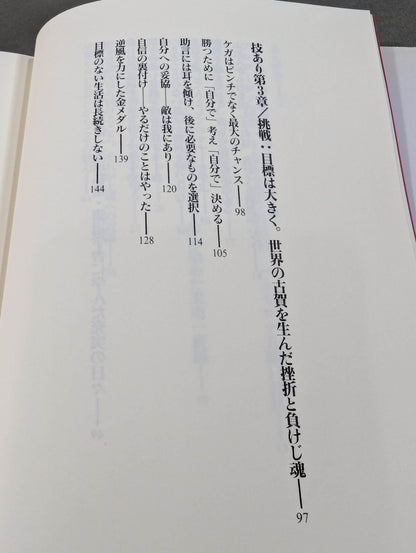 技あり第3章／挑戦：目標は大きく。世界の古賀を生んだ挫折と負けじ魂——97
ケガはピンチでなく最大のチャンス——98
勝つために「自分で」考え「自分で」決める——105
助言には耳を傾け、後に必要なものを選択——114
自分への妥協——敵は我にあり——120
自信の裏付け——やるだけのことはやった——128
逆風を力にした金メダル——139
目標のない生活は長続きしない——144